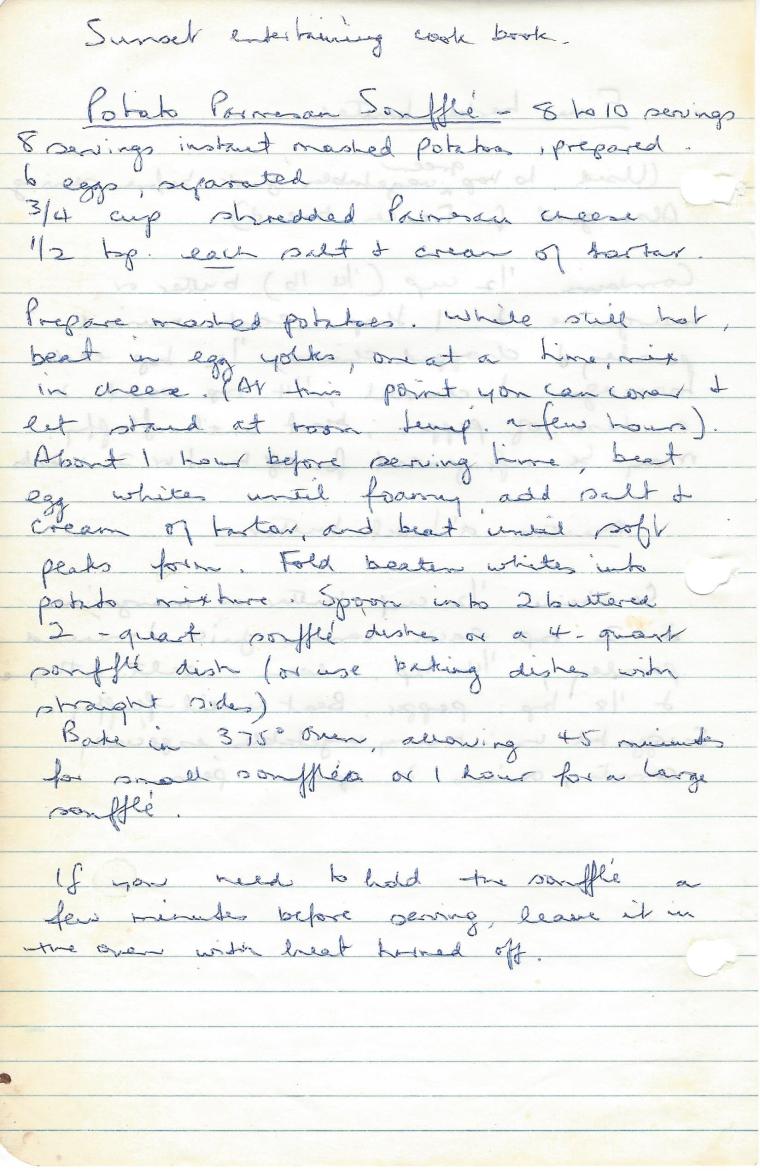 Sunset entertaining cook book.
Potato Parmesan Soufflé - 8 to 10 servings
8 servings instant mashed potatoes, prepared.
6 eggs, separated
3/4 cup shredded Parmesan cheese
1/2 tsp. each salt & cream of tartar.
Prepare mashed potatoes. While still hot,
beat in egg yolks, one at a time, mix
in cheese. (At this point you can cover &
let stand at room temp. a few hours).
About 1 hour before serving time, beat
egg whites until foamy, add salt &
cream of tartar, and beat until soft
peaks form. Fold beaten whites into
potato mixture. Spoon into 2 buttered
2-quart soufflé dishes or a 4-quart
soufflé dish (or use baking dishes with
straight sides)
Bake in 375° oven, allowing 45 minutes
for small soufflés or 1 hour for a large
soufflé.
If you need to hold the soufflé a
few minutes before serving, leave it in
the oven with heat turned off.